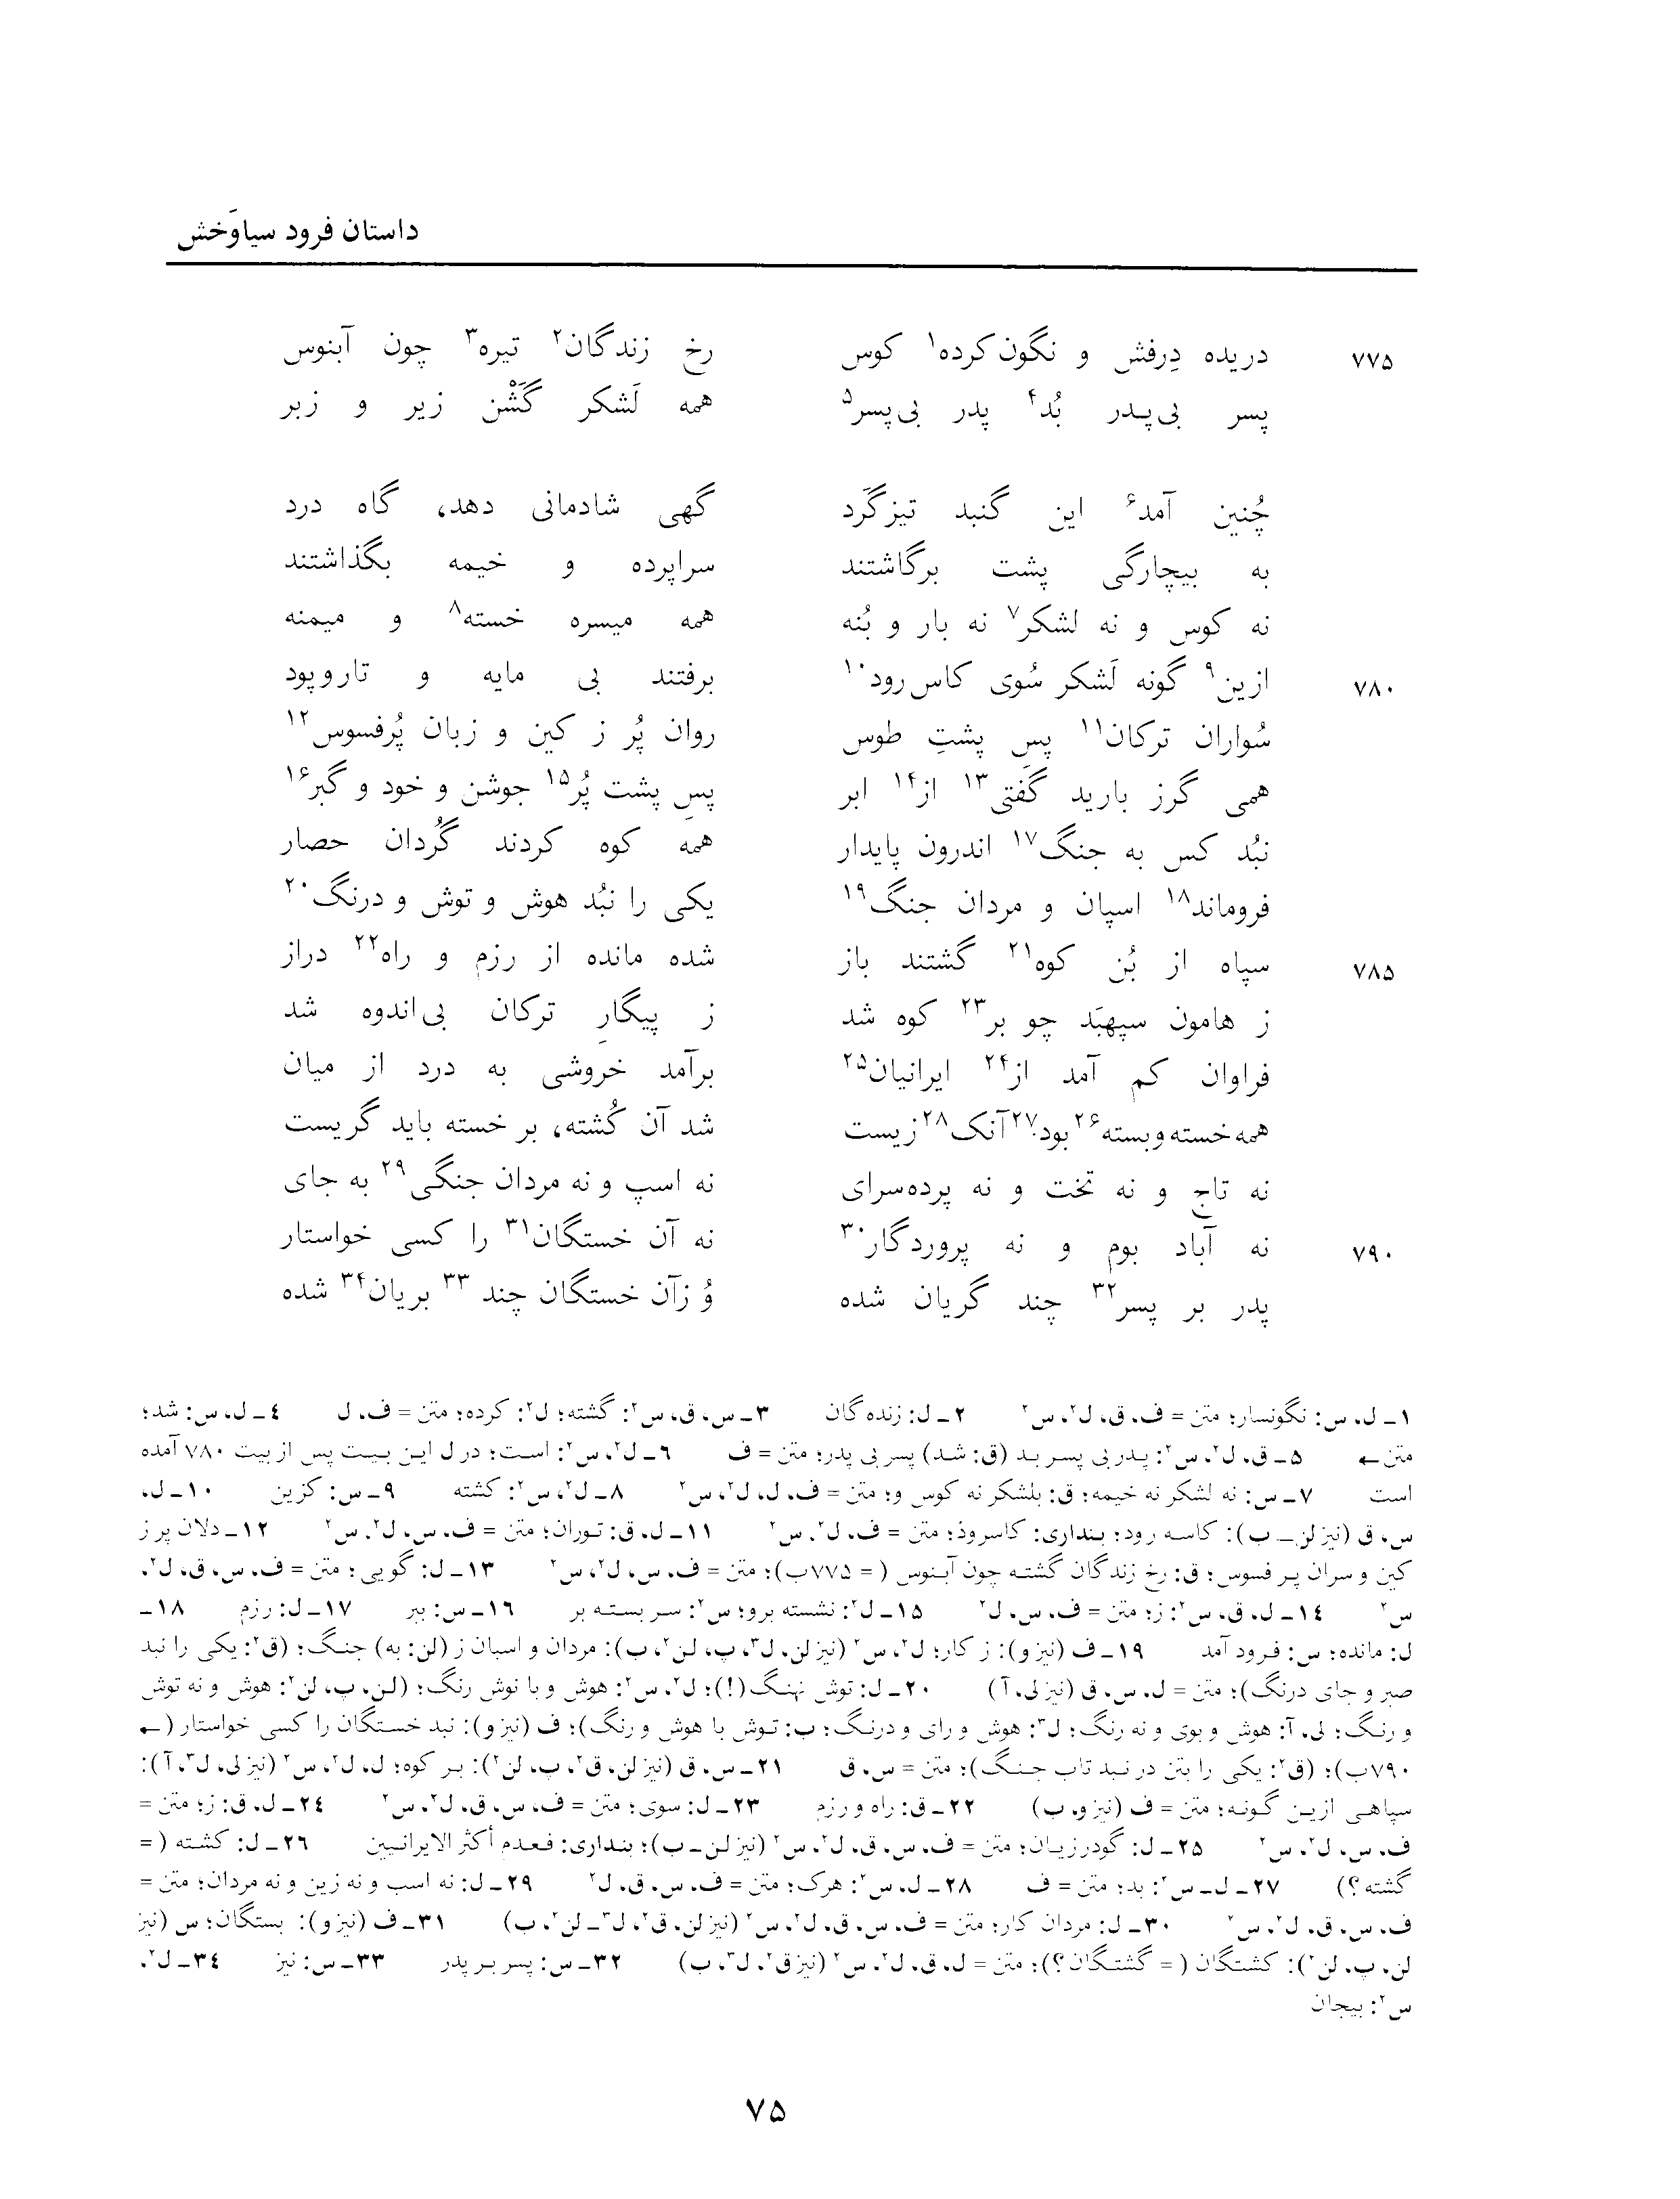 داستان فرود سیاوَخش
۷۷۵ دریده دِرفش و نگون‌کرده۱ کوس رخ زندگان۲ تیره۳ چون آبنوس
پسر بی‌پدر بُد۴ پدر بی‌پسر۵ همه لَشکر گَشْن زیر و زبر
چُنین آمد۶ این گنبد تیزگَرد گهی شادمانی دهد، گاه درد
به بیچارگی پشت برگاشتند سراپرده و خیمه بگذاشتند
نه کوس و نه لشکر۷ نه بار و بُنه همه میسره خسته۸ و میمنه
۷۸۰ ازین۹ گونه لَشکر سُوی کاس‌رود۱۰ برفتند بی مایه و تاروپود
سُواران ترکان۱۱ پسِ پشتِ طوس روان پُر ز کین و زبان پُرفسوس۱۲
همی گرز بارید گفتی۱۳ از۱۴ ابر پسِ پشت پُر۱۵ جوشن و خود و گبر۱۶
نبُد کس به جنگ۱۷ اندرون پایدار همه کوه کردند گُردان حصار
فروماند۱۸ اسپان و مردان جنگ۱۹ یکی را نبُد هوش و توش و درنگ۲۰
۷۸۵ سپاه از بُن کوه۲۱ گشتند باز شده مانده از رزم و راه۲۲ دراز
ز هامون سپهبَد چو بر۲۳ کوه شد ز پیگارِ ترکان بی‌اندوه شد
فراوان کم آمد از۲۴ ایرانیان۲۵ برآمد خروشی به درد از میان
همه خسته و بسته۲۶ بود۲۷ آنک۲۸ زیست شد آن کُشته، بر خسته باید گریست
نه تاج و نه تخت و نه پرده‌سرای نه اسپ و نه مردان جنگی۲۹ به جای
۷۹۰ نه آباد بوم و نه پروردگار۳۰ نه آن خستگان۳۱ را کسی خواستار
پدر بر پسر۳۲ چند گریان شده وُ زآن خستگان چند۳۳ بریان۳۴ شده
۱ـ ل، س: نگونسار؛ متن = ف، ق، ل۲، س۲ ۲ـ ل: زنده‌گان ۳ـ س، ق، س۲: گشته؛ ل۲: کرده؛ متن = ف، ل ٤ـ ل، س: شد؛
متن ← ۵ـ ق، ل۲، س۲: پدر بی پسر بد (ق: شد) پسر بی پدر؛ متن = ف ۶ـ ل۲، س۲: است؛ در ل این بیت پس از بیت ۷۸۰ آمده
است ۷ـ س: نه لشکر نه خیمه؛ ق: بلشکر نه کوس و؛ متن = ف، ل، ل۲، س۲ ۸ـ ل۲، س۲: کشته ۹ـ س: کزین ۱۰ـ ل،
س، ق (نیز لن ـ ب): کاسه رود؛ بنداری: کاسروذ؛ متن = ف، ل۲، س۲ ۱۱ـ ل، ق: توران؛ متن = ف، س، ل۲، س۲ ۱۲ـ دلان پر ز
کین و سران پر فسوس؛ ق: رخ زندگان گشته چون آبنوس (= ۷۷۵ب)؛ متن = ف، س، ل۲، س۲ ۱۳ـ ل: گویی؛ متن = ف، س، ق، ل۲،
س۲ ۱٤ـ ل، ق، س۲: ز؛ متن = ف، س، ل۲ ۱۵ـ ل۲: نشسته برو؛ س۲: سر بسته بر ۱۶ـ س: ببر ۱۷ـ ل: رزم ۱۸ـ
ل: مانده؛ س: فرود آمد ۱۹ـ ف (نیز و): ز کار؛ ل۲، س۲ (نیز لن، ل۳، پ، لن۲، ب): مردان و اسبان ز (لن: به) جنگ؛ (ق۲: یکی را نبد
صبر و جای درنگ)؛ متن = ل، س، ق (نیز لی، آ) ۲۰ـ ل: توش نهنگ(!)؛ ل۲، س۲: هوش و با نوش رنگ؛ (لن، پ، لن۲: هوش و نه توش
و رنگ؛ لی، آ: هوش و بوی و نه رنگ؛ ل۳: هوش و رای و درنگ؛ ب: توش با هوش و رنگ)؛ ف (نیز و): نبد خستگان را کسی خواستار (←
۷۹۰ب)؛ (ق۲: یکی را بتن در نبد تاب جنگ)؛ متن = س، ق ۲۱ـ س، ق (نیز لن، ق۲، پ، لن۲): بر کوه؛ ل، ل۲، س۲ (نیز لی، ل۳، آ):
سپاهی ازین گونه؛ متن = ف (نیز و، ب) ۲۲ـ ق: راه و رزم ۲۳ـ ل: سوی؛ متن = ف، س، ق، ل۲، س۲ ۲٤ـ ل، ق: ز؛ متن =
ف، س، ل۲، س۲ ۲۵ـ ل: گودرزیان؛ متن = ف، س، ق، ل۲، س۲ (نیز لن ـ ب)؛ بنداری: فعدم أکثر الایرانیین ۲۶ـ ل: کشته (=
گشته؟) ۲۷ـ ل ـ س۲: بد؛ متن = ف ۲۸ـ ل، س۲: هرک؛ متن = ف، س، ق، ل۲ ۲۹ـ ل: نه اسب و نه زین و نه مردان؛ متن =
ف، س، ق، ل۲، س۲ ۳۰ـ ل: مردان کار؛ متن = ف، س، ق، ل۲، س۲ (نیز لن، ق۲، ل۳ ـ لن۲، ب) ۳۱ـ ف (نیز و): بستگان؛ س (نیز
لن، پ، لن۲): کشتگان (= گشتگان؟)؛ متن = ل، ق، ل۲، س۲ (نیز ق۲، ل۳، ب) ۳۲ـ س: پسر بر پدر ۳۳ـ س: نیز ۳٤ـ ل۲،
س۲: بیجان
۷۵